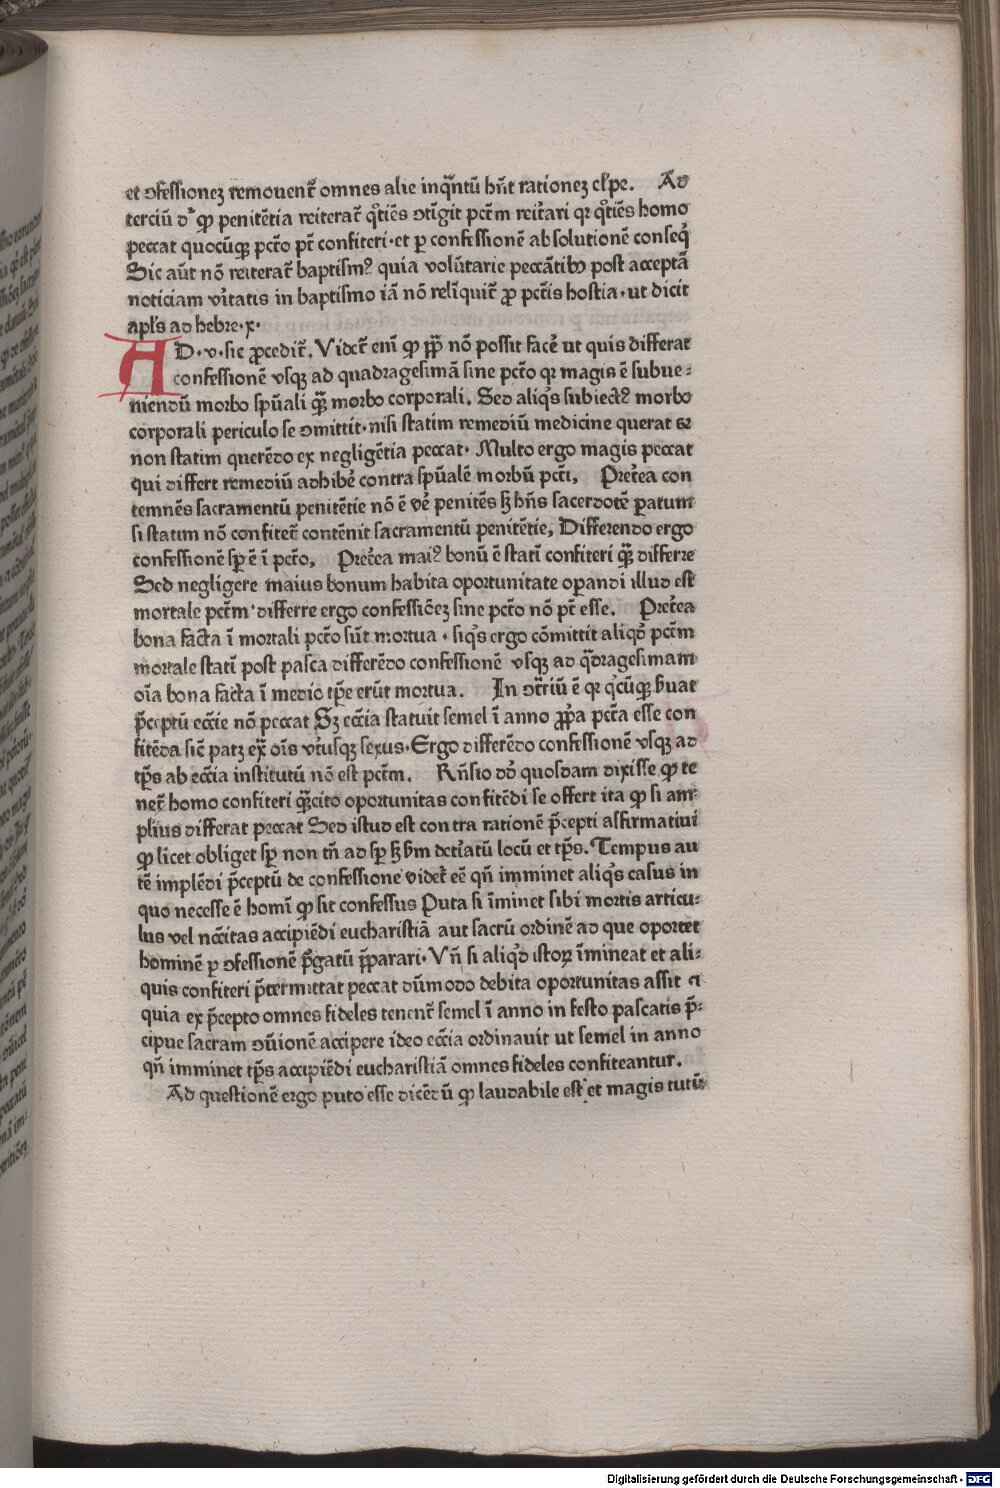 et ɔfessionez remouent᷑ omnes alie inqᷓntū hn̄t rationez cl̓pe. Ad
terciū d᷑ ꝙ penitētia reiterat᷑ qͦtiēs ɔtīgit pct̄m reit̓ari qꝛ qͦtiēs homo
peccat quocūqꝫ pct̄o pt̄ confiteri·et ꝑ confessionē absolutionē conseq̄
Sic aūt nō reiterat᷑ baptismꝰ quia volūtarie peccātibꝰ post acceptā
noticiam v̓itatis in baptismo iā nō relīquit᷑ ꝓ pct̄is hostia·ut dicit
apl̓s ad hebre·x·
AD·v·sic ꝓcedit᷑. Videt᷑ enī ꝙ pp̄ nō possit fac̓e ut quis differat
confessionē vsqꝫ ad quadragesimā sine pct̄o qꝛ magis ē subue⸗
niendū morbo spūali qᷓꝫ morbo corporali. Sed aliqͥs subiectꝰ morbo
corporali periculo se ɔmittit·nisi statim remediū medicine querat ⁊
non statim querēdo ex negligētia peccat· Multo ergo magis peccat
qui differt remediū adhib̓e contra spūalē morbū pct̄i, Pret̓ea con
temnēs sacramentū penitētie nō ē ve᷑ penitēs sꝫ hn̄s sacerdotē ꝑatum
si statim nō confitet᷑ contēnit sacramentū penitētie, Differendo ergo
confessionē sp̄ ē ī pct̄o, Pret̓ea maiꝰ bonū ē statī confiteri qᷓꝫ differre
Sed negligere maius bonum habita oportunitate oꝑandi illud est
mortale pct̄m·differre ergo confessiōez sine pct̄o nō pt̄ esse. Pret̓ea
bona facta ī mortali pct̄o sūt mortua·siqͥs ergo cōmittit aliqͦd pct̄m
mortale statī post pasca differēdo confessionē vsqꝫ ad qᷓdragesimam
oīa bona facta ī medio tꝑe erūt mortua. In ɔt̓riū ē qꝛ qͥcūqꝫ ẜuat
p̄ceptū ecc̄ie nō peccat Sꝫ ecc̄ia statuit semel ī anno ꝓpͥa pct̄a esse con
fitēda sic̄ patꝫ ex̄ oīs vt̓usqꝫ sexus·Ergo differēdo confessionē vsqꝫ ad
tp̄s ab ecc̄ia institutū nō est pct̄m. Rn̄sio dō quosdam dixisse ꝙ te
net᷑ homo confiteri qᷓꝫcito oportunitas confitēdi se offert ita ꝙ si am⸗
plius differat peccat Sed istud est contra rationē p̄cepti affirmatiui
ꝙ licet obliget sp̄ non tn̄ ad sp̄ sꝫ ẜm det̓iatū locū et tp̄s. Tempus au
tē implēdi p̄ceptū de confessione videt᷑ eē qn̄ imminet aliqͥs casus in
quo necesse ē homī ꝙ sit confessus Puta si īminet sibi mortis articu⸗
lus vel nc̄citas accipiēdi eucharistiā aut sacrū ordinē ad que oportet
hominē ꝑ ɔfessionē p̄gatū p̄parari·Vn̄ si aliqͦd istoꝝ īmineat et ali⸗
quis confiteri p̄termittat peccat dūmodo debita oportunitas assit ⁊
quia ex p̄cepto omnes fideles tenent᷑ semel ī anno in festo pascatis p̄⸗
cipue sacram ɔūionē accipere ideo ecc̄ia ordinauit ut semel in anno
qn̄ imminet tp̄s accipiēdi eucharistiā omnes fideles confiteantur.
Ad questionē ergo puto esse dicēdū ꝙ laudabile est·et magis tutū
Digitalisierung gefördert durch die Deutsche Forschungsgemeinschaft - DFG